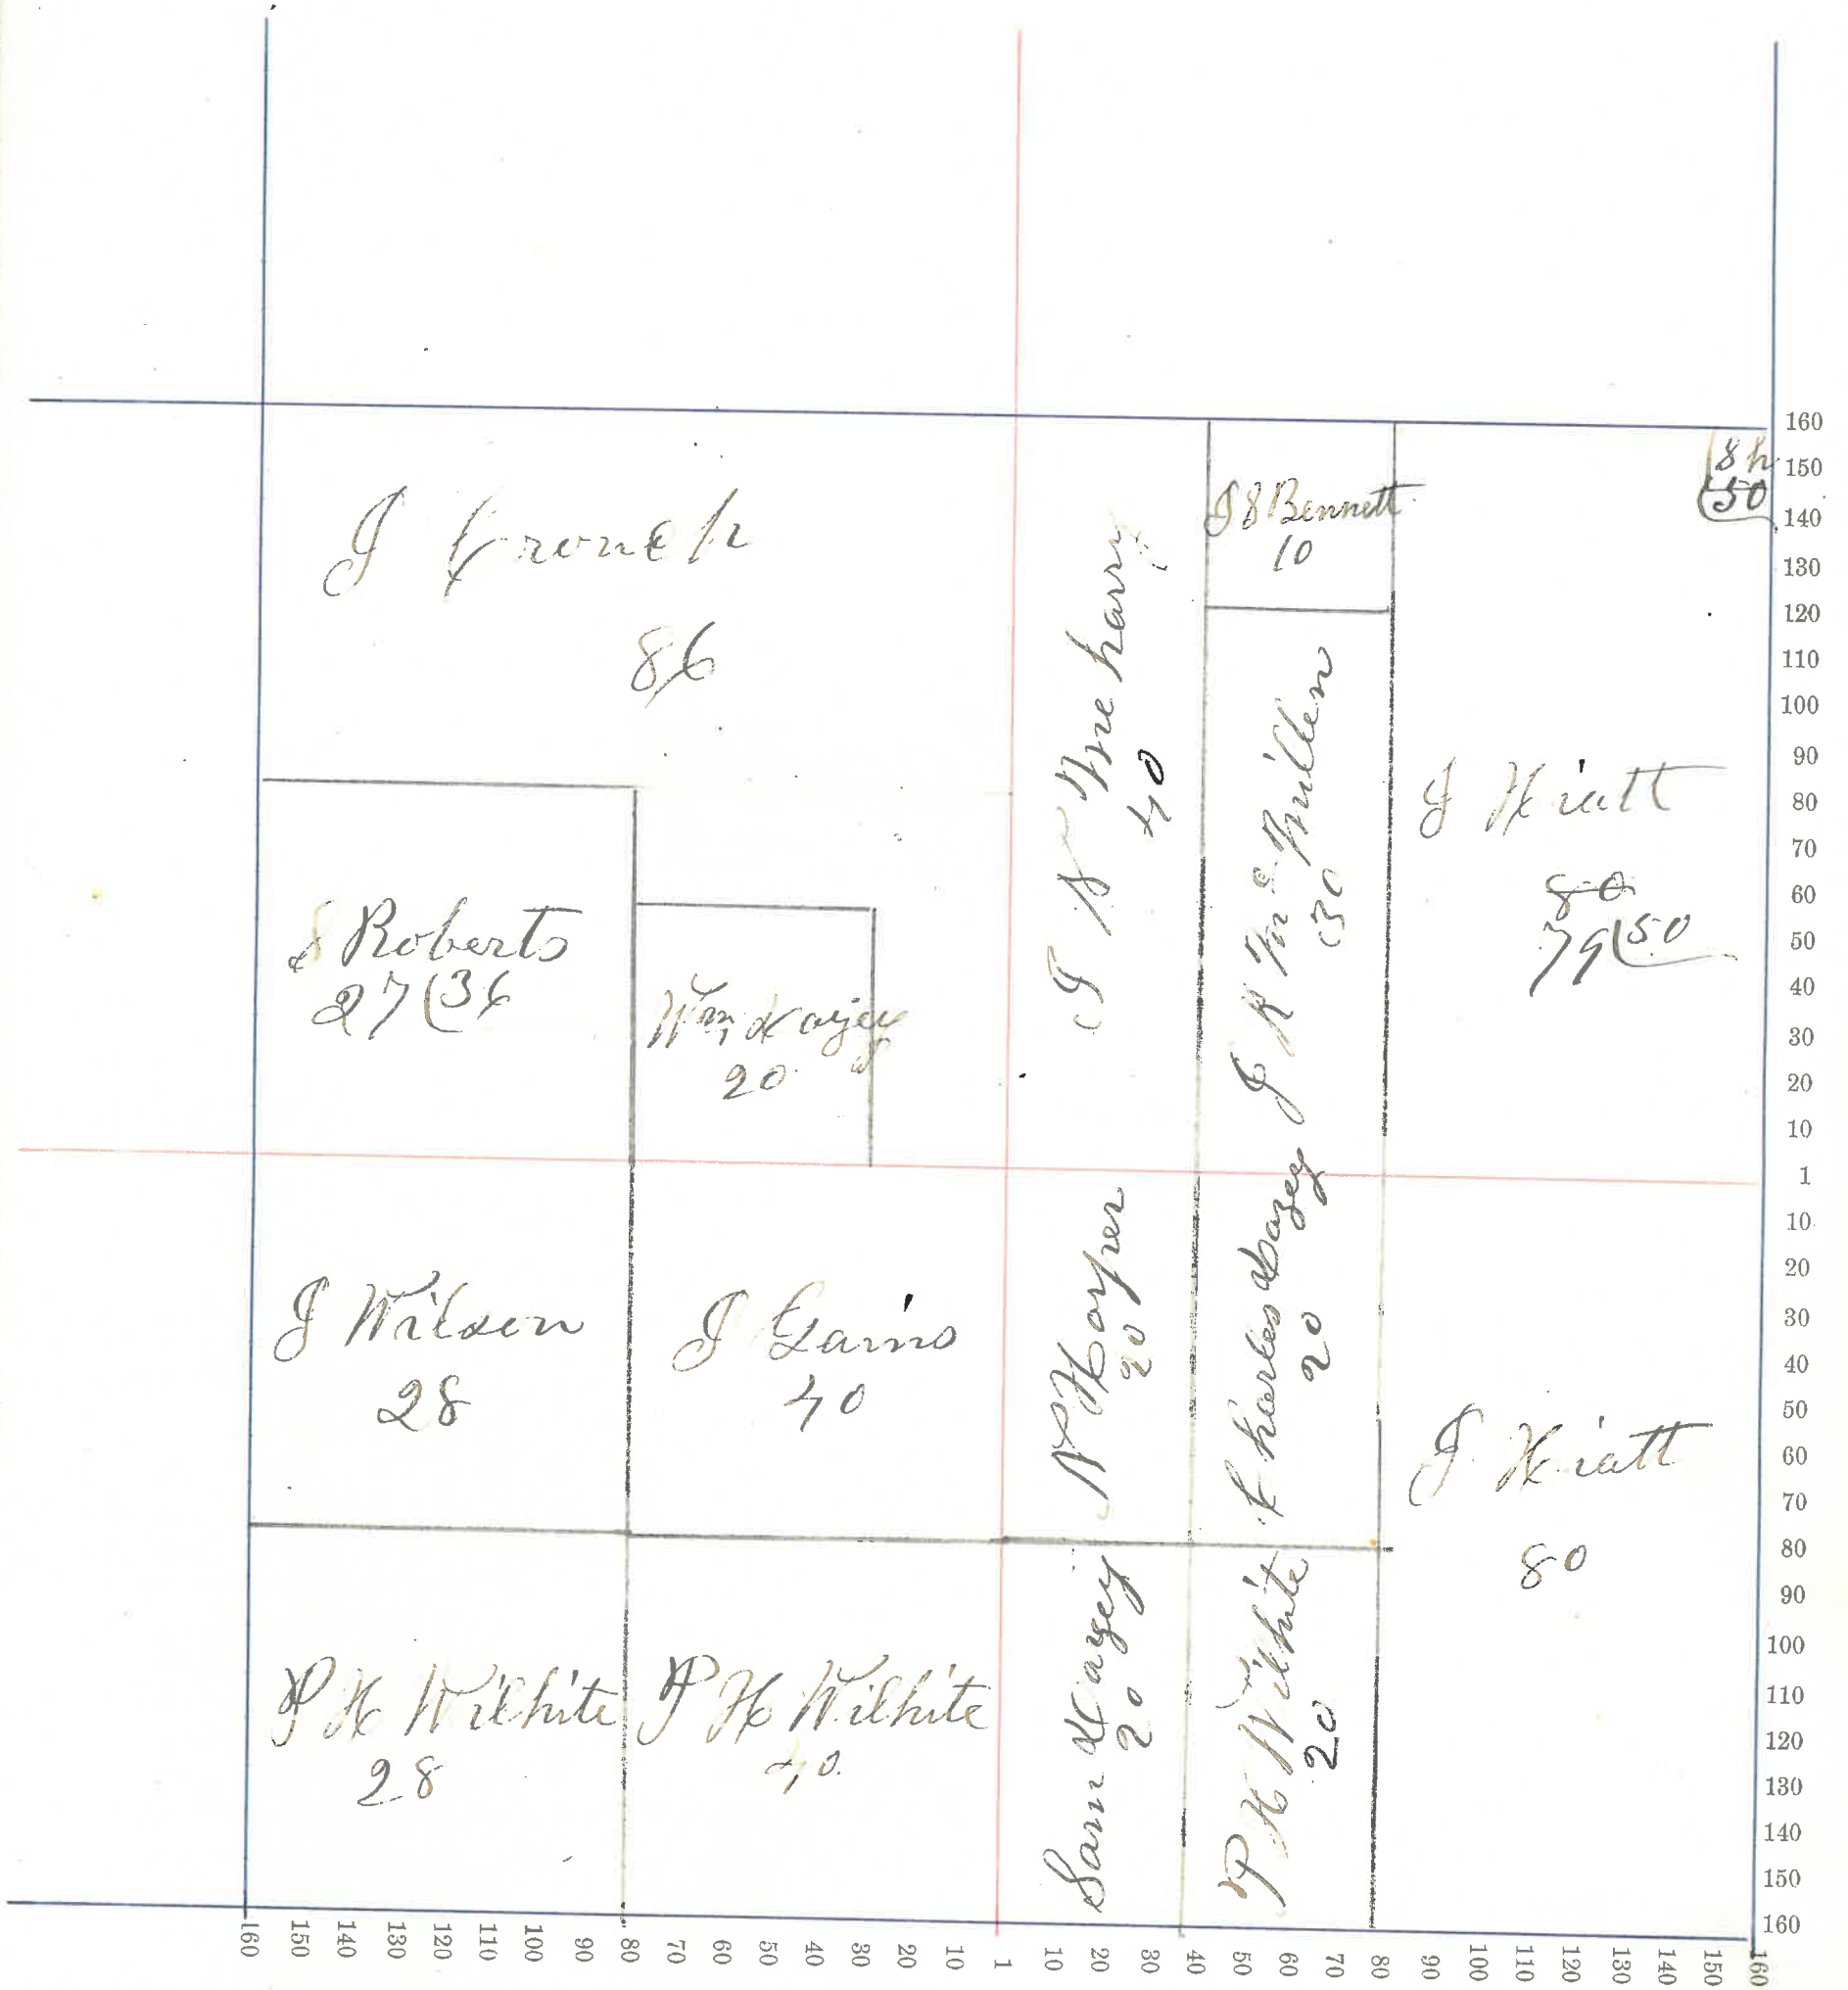 J Crouch
86
J N Meharry
40
J S Bennett
10
Sh
50
J R McMillen
30
J Hiatt
80
79(50
S Roberts
27(36
Wm Dazey
20
J Wilson
28
J Gains
40
N Hooper
20
Charles Dazey
20
J Hiatt
80
P H Wilhite
28
P H Wilhite
40
Sam Dazey
20
P H Wilhite
20
160
150
140
130
120
110
100
90
80
70
60
50
40
30
20
10
1
10
20
30
40
50
60
70
80
90
100
110
120
130
140
150
160
160 150 140 130 120 110 100 90 80 70 60 50 40 30 20 10 1 10 20 30 40 50 60 70 80 90 100 110 120 130 140 150 160